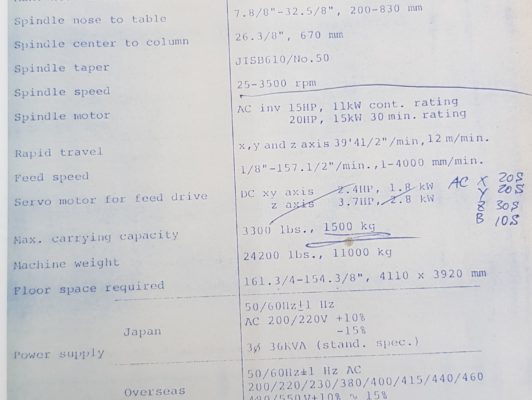 Spindle nose to table 7.8/8"-32.5/8", 200-830 mm
Spindle center to column 26.3/8", 670 mm
Spindle taper JISB610/No.50
Spindle speed 25-3500 rpm
Spindle motor AC inv 15HP, 11kW cont. rating
20HP, 15kW 30 min. rating
Rapid travel x,y and z axis 39'41/2"/min,12 m/min.
Feed speed 1/8"-157.1/2"/min.,1-4000 mm/min.
Servo motor for feed drive DC xy axis 2.4HP, 1.8 kW AC X 20S
z axis 3.7HP, 2.8 kW Y 20S
Z 30S
B 10S
Max. carrying capacity 3300 lbs., 1500 kg
Machine weight 24200 lbs., 11000 kg
Floor space required 161.3/4-154.3/8", 4110 x 3920 mm
50/60Hz±1 Hz
Japan AC 200/220V +10%
-15%
Power supply 3ø 36KVA (stand. spec.)
50/60Hz±1 Hz AC
Overseas 200/220/230/380/400/415/440/460
480/550V+10% ~ 15%